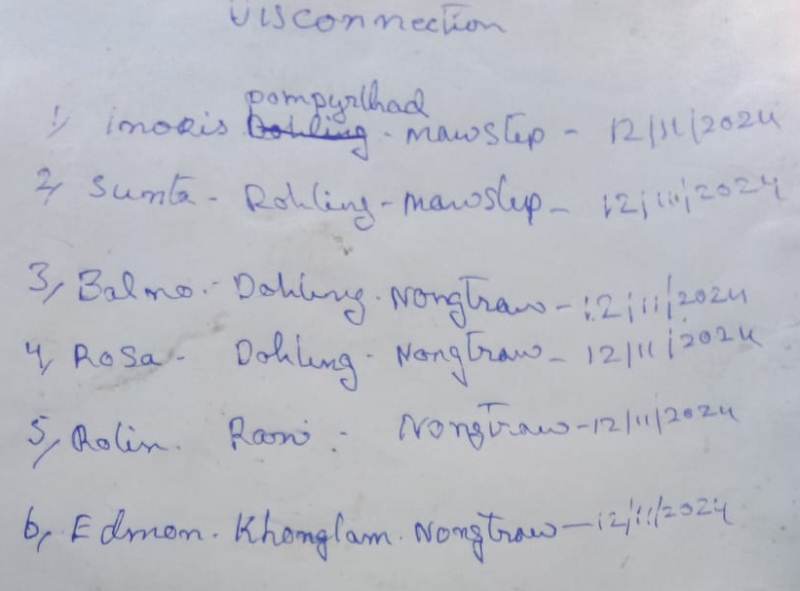 Disconnection
pompyrlhad
1, imoris Dohling - mawstep - 12/11/2024
2, Sunta - Rohling - mawstep - 12/11/2024
3, Balmo - Dohling - Nongtraw - 12/11/2024
4, Rosa - Dohling - Nongtraw - 12/11/2024
5, Rolin. Rani - Nongtraw - 12/11/2024
6, Edmon - Khonglam. Nongtraw - 12/11/2024